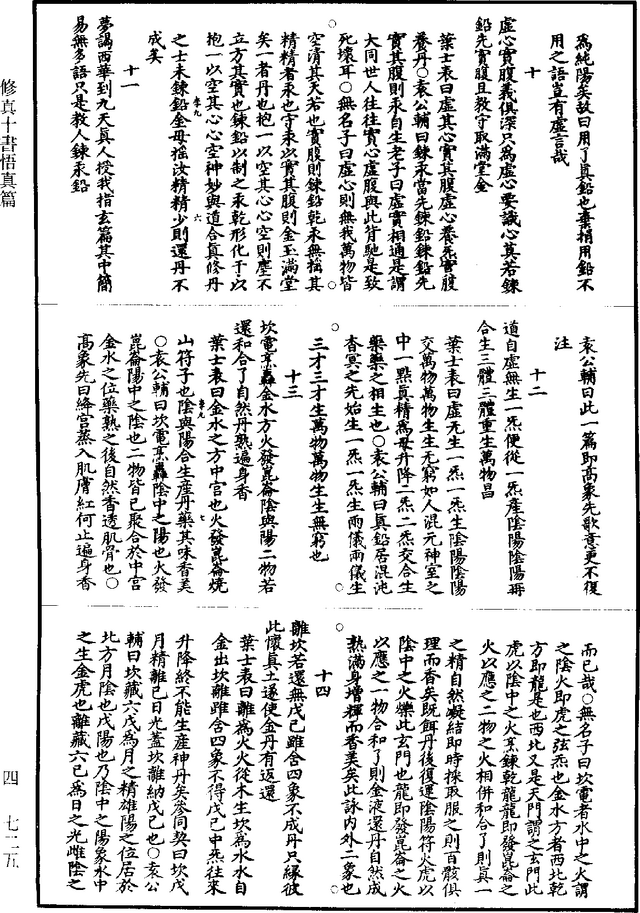 爲純陽矣故曰用了眞鉛也棄捐用鉛不
用之語豈有虛言哉
十
虛心實腹義俱深只爲虛心要識心莫若鍊
鉛先實腹且敎守取滿堂金
葉士表曰虛其心實其腹虛心養炁實腹
養丹○袁公輔曰鍊汞當先鍊鉛鍊鉛先
實其腹則汞自生老子曰虛實相通是謂
大同世人往往實心虛腹與此背馳是致
死壞耳○無名子曰虛心則無我萬物皆
空清其天若也實腹則鍊鉛乾汞無搖其
精精者汞也守汞以實其腹則金玉滿堂
矣一者丹也抱一以空其心心空則塵不
立方其實也鍊鉛以制之汞乾形化于以
抱一以空其心心空神妙與道合眞修丹
之士未鍊鉛金毋摇汝精精少則還丹不
成矣
十一
夢謁西華到九天眞人授我指玄篇其中簡
易無多語只是敎人鍊汞鉛
袁公輔曰此一篇即高象先歌意更不復
注
十二
道自虛無生一炁便從一炁產陰陽陰陽再
合生三體三體重生萬物昌
葉士表曰虛无生一炁一炁生陰陽陰陽
交萬物萬物生生无窮如人混元神室之
中一點眞精爲母升降一炁二炁交合生
藥藥之相生也○袁公輔曰眞鉛居混沌
杳冥之先始生一炁一炁生兩儀兩儀生
三才三才生萬物萬物生生無窮也
十三
坎電烹轟金水方火發崑崙陰與陽二物若
還和合了自然丹熟遍身香
葉士表曰金水之方中宫也火發崑崙燒
山符子也陰與陽合生產丹藥其味香美
○袁公輔曰坎電烹轟陰中之陽也火發
崑崙陽中之陰也二物皆已聚合於中宫
金水之位藥熟之後自然香透肌骨也○
高象先曰絳宫蒸入肌膚紅何止遍身香
而已哉○無名子曰坎電者水中之火謂
之陰火即虎之弦炁也金水方者西北乾
方即龍是也西北又是天門謂之玄門此
虎以陰中之火烹鍊乾龍龍即發崑崙之
火以應之二物之火相併和合了則眞一
之精自然凝結即時採取服之則百骸俱
理而香矣既餌丹後復運陰陽符火虎以
陰中之火爍此玄門也龍即發崑崙之火
以應之一物合和了則金液還丹自然成
熟滿身增輝而香美矣此詠內外二象也
十四
離坎若還無戊己雖含四象不成丹只緣彼
此懷眞土遂使金丹有返還
葉士表曰離爲火火從木生坎爲水水自
金出坎離雖含四象不得戊己中炁往來
升降終不能生產神丹矣參同契曰坎戊
月精離己日光蓋坎離納戊己也○袁公
輔曰坎藏六戊爲月之精雄陽之位居於
北方月陰也戊陽也乃陰中之陽象水中
之生金虎也離藏六己爲日之光雌陰之
修真十書悟真篇
四 七二五